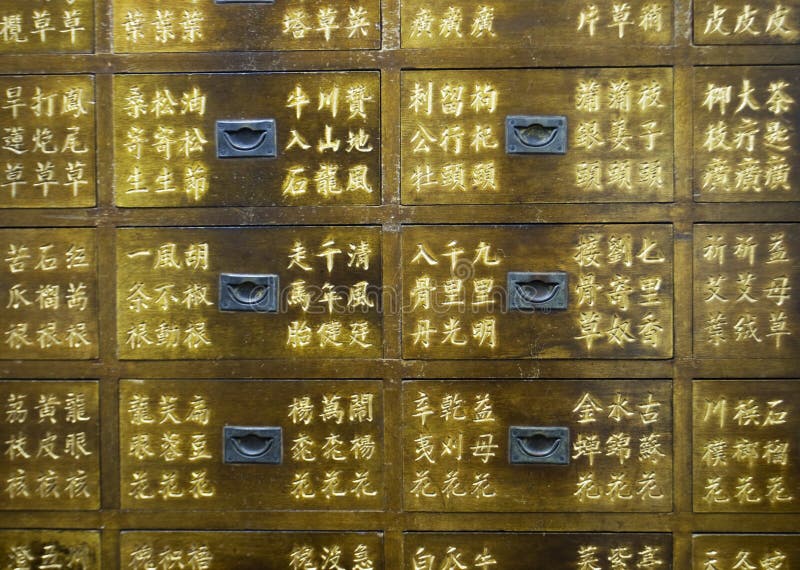 皮
皮
皮
草
片
癀
癀
癀
英
草
塔
葉
葉
葉
草
草
欖
茶匙癀
大疔癀
柳枝癀
枝子頭
蒲姜頭
蒲銀頭
枸杞頭
留行頭
刺公牡
贊地風
川山龍
牛入石
油松節
松寄生
桑寄生
鳳尾草
打炮草
旱蓮草
益母草
祈艾絨
祈艾葉
七里香
劉寄奴
接骨草
九里明
千里光
入骨丹
清風廷
千年健
走馬胎
胡椒根
風不動
一条根
石榴根
苦瓜根
石榴花
川樸花
古蘇花
水錦花
金蟬花
益母花
乾刈花
辛夷花
扁豆花
芙蓉花
龍眼花
龍眼核
黃皮核
荔枝核